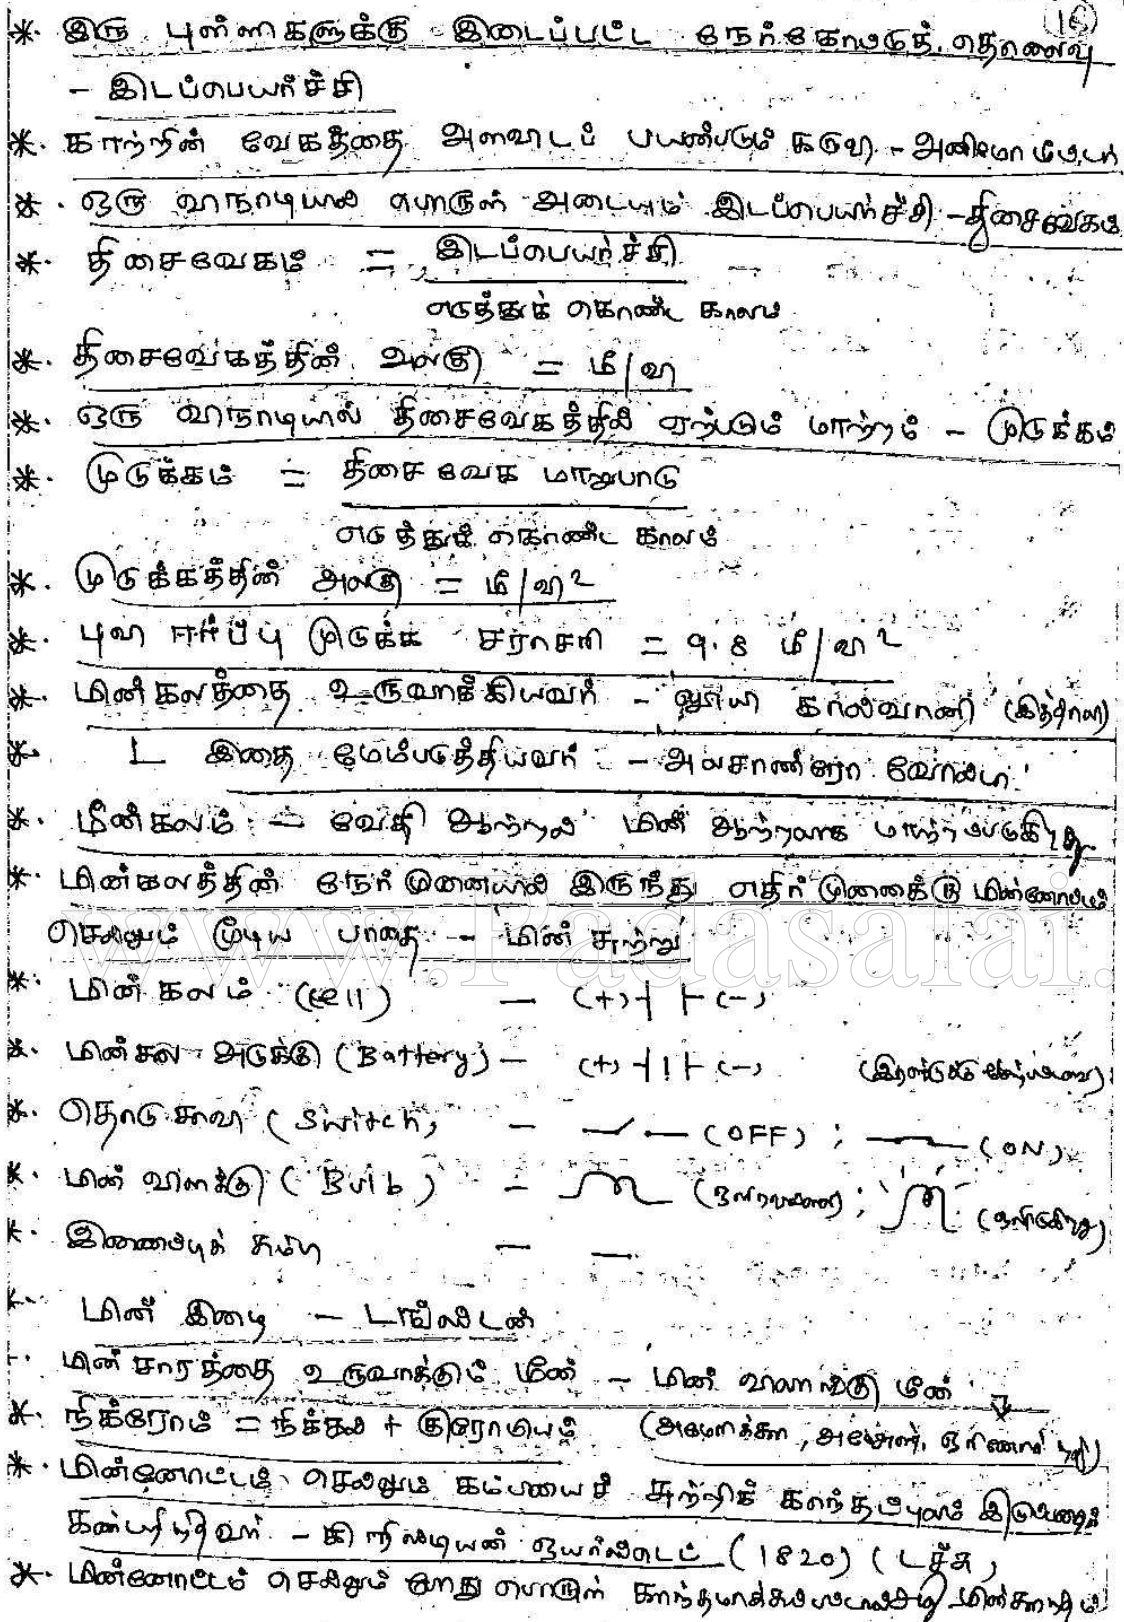 15
* இரு புள்ளிகளுக்கு இடைப்பட்ட நேர்கோட்டுத் தொலைவு
- இடப்பெயர்ச்சி
* காற்றின் வேகத்தை அளவிடப் பயன்படும் கருவி - அனிமோ மீட்டர்
* ஒரு வினாடியில் பொருள் அடையும் இடப்பெயர்ச்சி - திசைவேகம்
* திசைவேகம் = இடப்பெயர்ச்சி
எடுத்துக் கொண்ட காலம்
* திசைவேகத்தின் அலகு = மீ/வி
* ஒரு வினாடியில் திசைவேகத்தில் ஏற்படும் மாற்றம் - முடுக்கம்
* முடுக்கம் = திசை வேக மாறுபாடு
எடுத்துக் கொண்ட காலம்
* முடுக்கத்தின் அலகு = மீ/வி²
* புவி ஈர்ப்பு முடுக்க சராசரி = 9.8 மீ/வி²
* மின்கலத்தை உருவாக்கியவர் - லூயி கால்வானி (இத்தாலி)
* L இதை மேம்படுத்தியவர் - அலசாண்ரோ வோல்டா
* மின்கலம் - வேதி ஆற்றல் மின் ஆற்றலாக மாற்றப்படுகிறது
* மின்கலத்தின் நேர் முனையில் இருந்து எதிர் முனைக்கு மின்னோட்டம்
செல்லும் மூடிய பாதை - மின் சுற்று
www.Padasarai.
* மின் கலம் (cell) - (+) ┤├ (-)
* மின்கல அடுக்கு (Battery) - (+) ┤|├ (-) (இரண்டுக்கு மேற்பட்டவை)
* தொடு சாவி (Switch) - (OFF) ; (ON)
* மின் விளக்கு (Bulb) - (ஒளிரவில்லை) ; (ஒளிர்கிறது)
* இணைப்புக் கம்பி - —
* மின் இடி - டாங்ஸ்டன்
* மின்சாரத்தை உருவாக்கும் மீன் - மின் விலாங்கு மீன்
* நிக்ரோம் = நிக்கல் + குரோமியம் (அமெரிக்கா, அமேசான், ஓரினாகோ நதி)
* மின்னோட்டம் செல்லும் கம்பியைச் சுற்றிக் காந்தப்புலம் இருப்பதைக்
கண்டறிந்தவர் - கிறிஸ்டியன் ஓயர்ஸ்டெட் (1820) (டச்சு)
* மின்னோட்டம் செல்லும் போது பொருள் காந்தமாக்கப்பட்டால் அது மின்காந்தம்